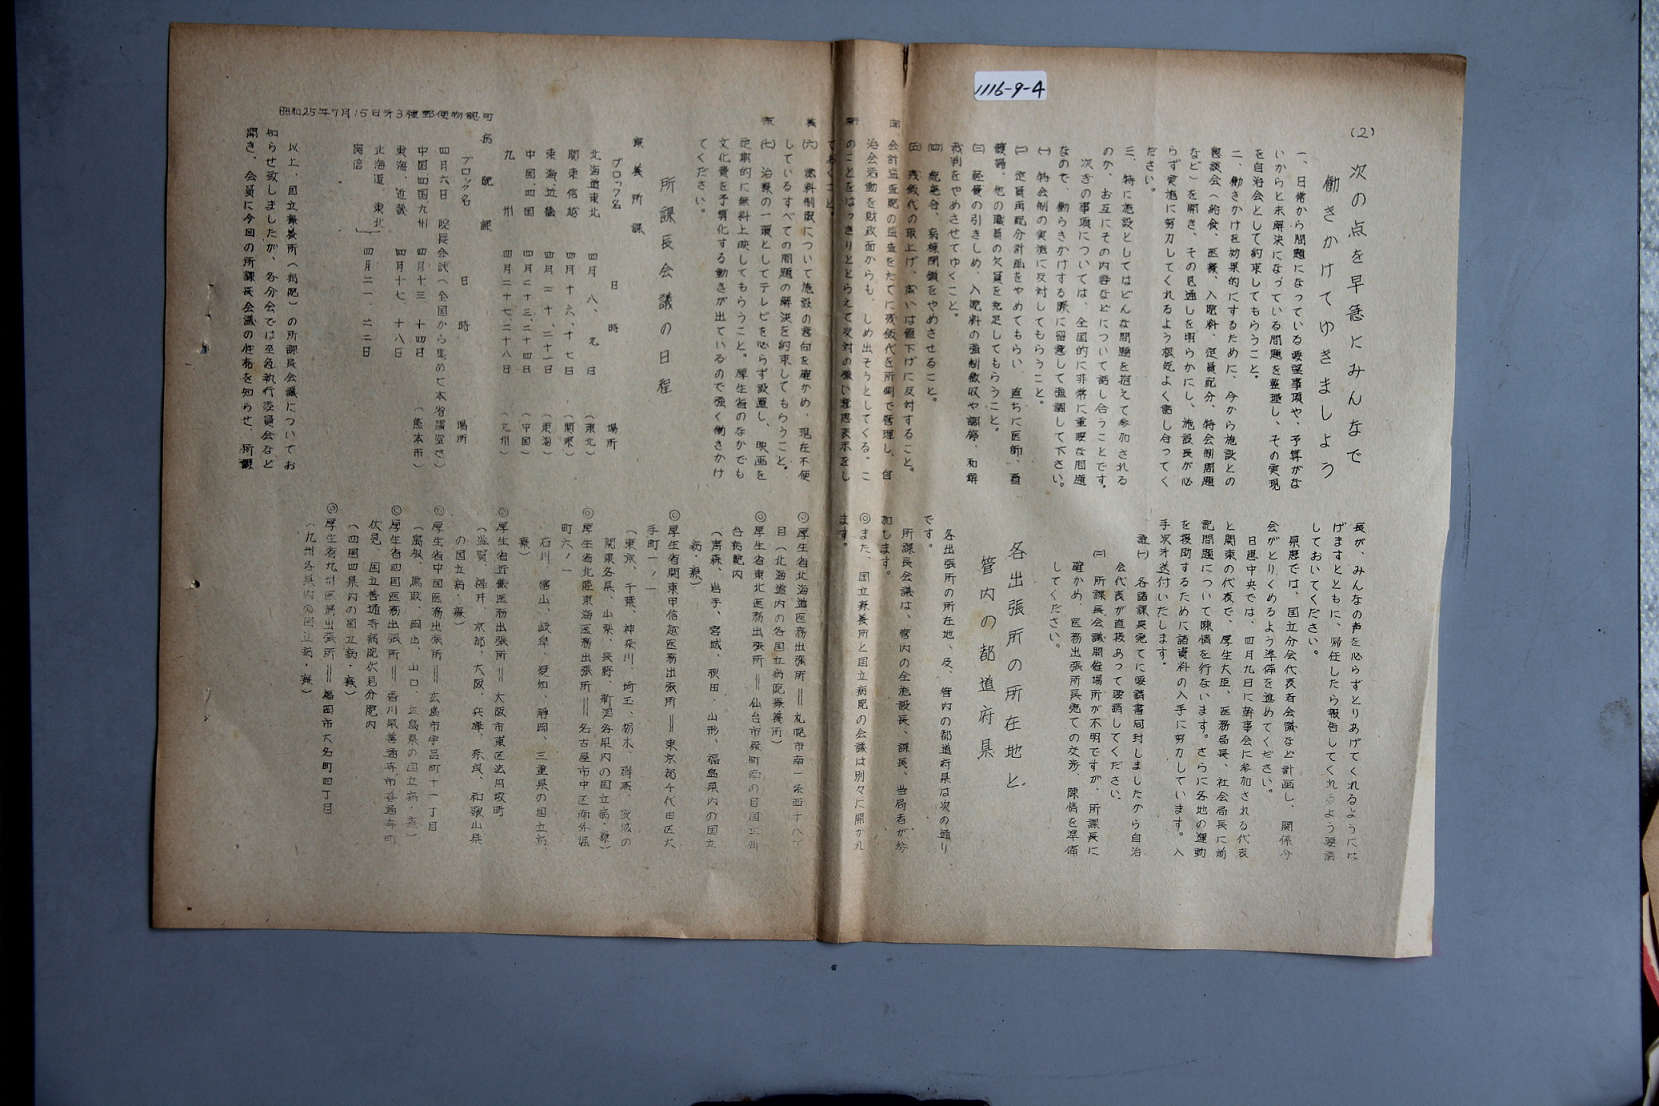 1116-9-4
(2)
次の点を早急にみんなで
働きかけてゆきましょう
一、日常から問題になっている要望事項や、予算がな
いからと未解決になっている問題を整理し、その実現
を自治会として約束してもらうこと。
二、働きかけを効果的にするために、今から施設との
懇談会（給食、医養、入院料、定員配分、特会制問題
など）を開き、その見通しを明らかにし、施設長が必
らず実施に努力してくれるよう根気よく話し合ってく
ださい。
三、特に施設としてはどんな問題を抱えて参加される
のか、お互にその内容などについて話し合うことです。
次ぎの事項については、全国的に非常に重要な問題
なので、働らきかけする際に留意して強調して下さい。
㈠ 特会制の実施に反対してもらうこと。
㈡ 定員再配分計画をやめてもらい、直ちに医師、看
護婦、他の職員の欠員を充足してもらうこと。
㈢ 軽費の引きしめ、入院料の強制徴収や調停、和解
裁判をやめさせてゆくこと。
㈣ 統廃合、病棟閉鎖をやめさせること。
㈤ 残飯代の取上げ、或いは値下げに反対すること。
会計監査院の監査をたてに残飯代を所側で管理し、自
治会活動を財政面からも、しめ出そうとしてくる。こ
のことをはっきりととらえて反対の強い意思表示をし
ておくこと。
㈥ 燃料制限について施設の意向を確かめ、現在不便
しているすべての問題の解決を約束してもらうこと。
㈦ 治療の一環としてテレビを必らず設置し、映画を
定期的に無料上映してもらうこと。厚生省のなかでも
文化費を予算化する動きが出ているので強く働きかけ
てください。
所課長会議の日程
療養所課
ブロック名　日　時　場所
北海道東北　四月八、九日　（東北）
関東信越　四月十六、十七日　（関東）
東海近畿　四月二十、二十一日　（東海）
中国四国　四月二十三、二十四日　（中国）
九州　四月二十七、二十八日　（九州）
病院課
ブロック名　日　時　場所
四月六日　院長会議（全国から集めて本省講堂で）
中国四国九州　四月十三、十四日　（熊本市）
東海、近畿　四月十七、十八日
北海道、東北　四月二一、二二日
関信
以上、国立療養所（病院）の所課長会議についてお
知らせ致しましたが、各分会では至急執行委員会など
開き、会員に今回の所課長会議の性格を知らせ、所課
昭和25年7月15日才3種郵便物認可
長が、みんなの声を必らずとりあげてくれるようには
げますとともに、帰任したら報告してくれるよう要請
しておいてください。
県患では、国立分会代表者会議など計画し、関係分
会がとりくめるよう準備を進めてください。
日患中央では、四月九日に幹事会に参加される代表
と関東の代表で、厚生大臣、医務局長、社会局長に前
記問題について陳情を行ないます。さらに各地の運動
を援助するために諸資料の入手に努力しています。入
手次才送付いたします。
㈠ 各諸課長宛てに要請書同封しましたから自治
会代表が直接あって要請してください。
㈡ 所課長会議開催場所が不明ですが、所課長に
確かめ、医務出張所長宛ての交渉、陳情を準備
してください。
各出張所の所在地と
管内の都道府県
各出張所の所在地、及、管内の都道府県は次の通り
です。
所課長会議は、管内の全施設長、課長、当局者が参
加します。
◎また、国立療養所と国立病院の会議は別々に開かれ
ます。
◎厚生省北海道医務出張所＝札幌市南一条西十八丁
目（北海道内の各国立病院療養所）
◎厚生省東北医務出張所＝仙台市
（青森、岩手、宮城、秋田、山形、福島県内の国立
病、療）
◎厚生省関東甲信越医務出張所＝東京都千代田区大
手町一ノ一
（東京、千葉、神奈川、埼玉、栃木、群馬、茨城の
関東各県、山梨、長野、新潟各県内の国立病・療）
◎厚生省北陸東海医務出張所＝名古屋市中区南外堀
町六ノ一
石川、富山、岐阜、愛知、静岡、三重県の国立病
療）
◎厚生省近畿医務出張所＝大阪市東区法円坂町
（滋賀、福井、京都、大阪、兵庫、奈良、和歌山県
の国立病、療）
◎厚生省中国医務出張所＝広島市宇品町十一丁目
（島根、鳥取、岡山、山口、広島県の国立病、療）
◎厚生省四国医務出張所＝香川県善通寺市善通寺町
伏見、国立善通寺病院伏見分院内
（四国四県内の国立病・療）
◎厚生省九州医務出張所＝福岡市大名町四丁目
（九州各県内の国立病・療）